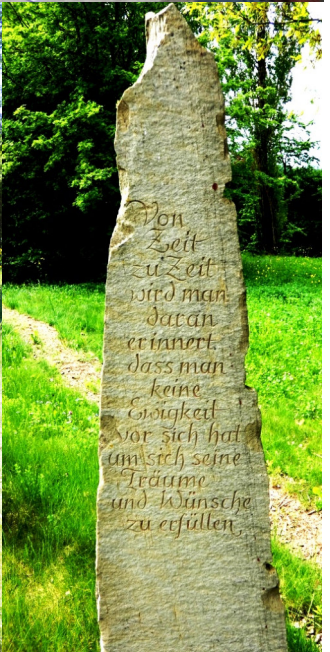 Von
Zeit
zu Zeit
wird man
daran
erinnert,
dass man
keine
Ewigkeit
vor sich hat
um sich seine
Träume
und Wünsche
zu erfüllen.